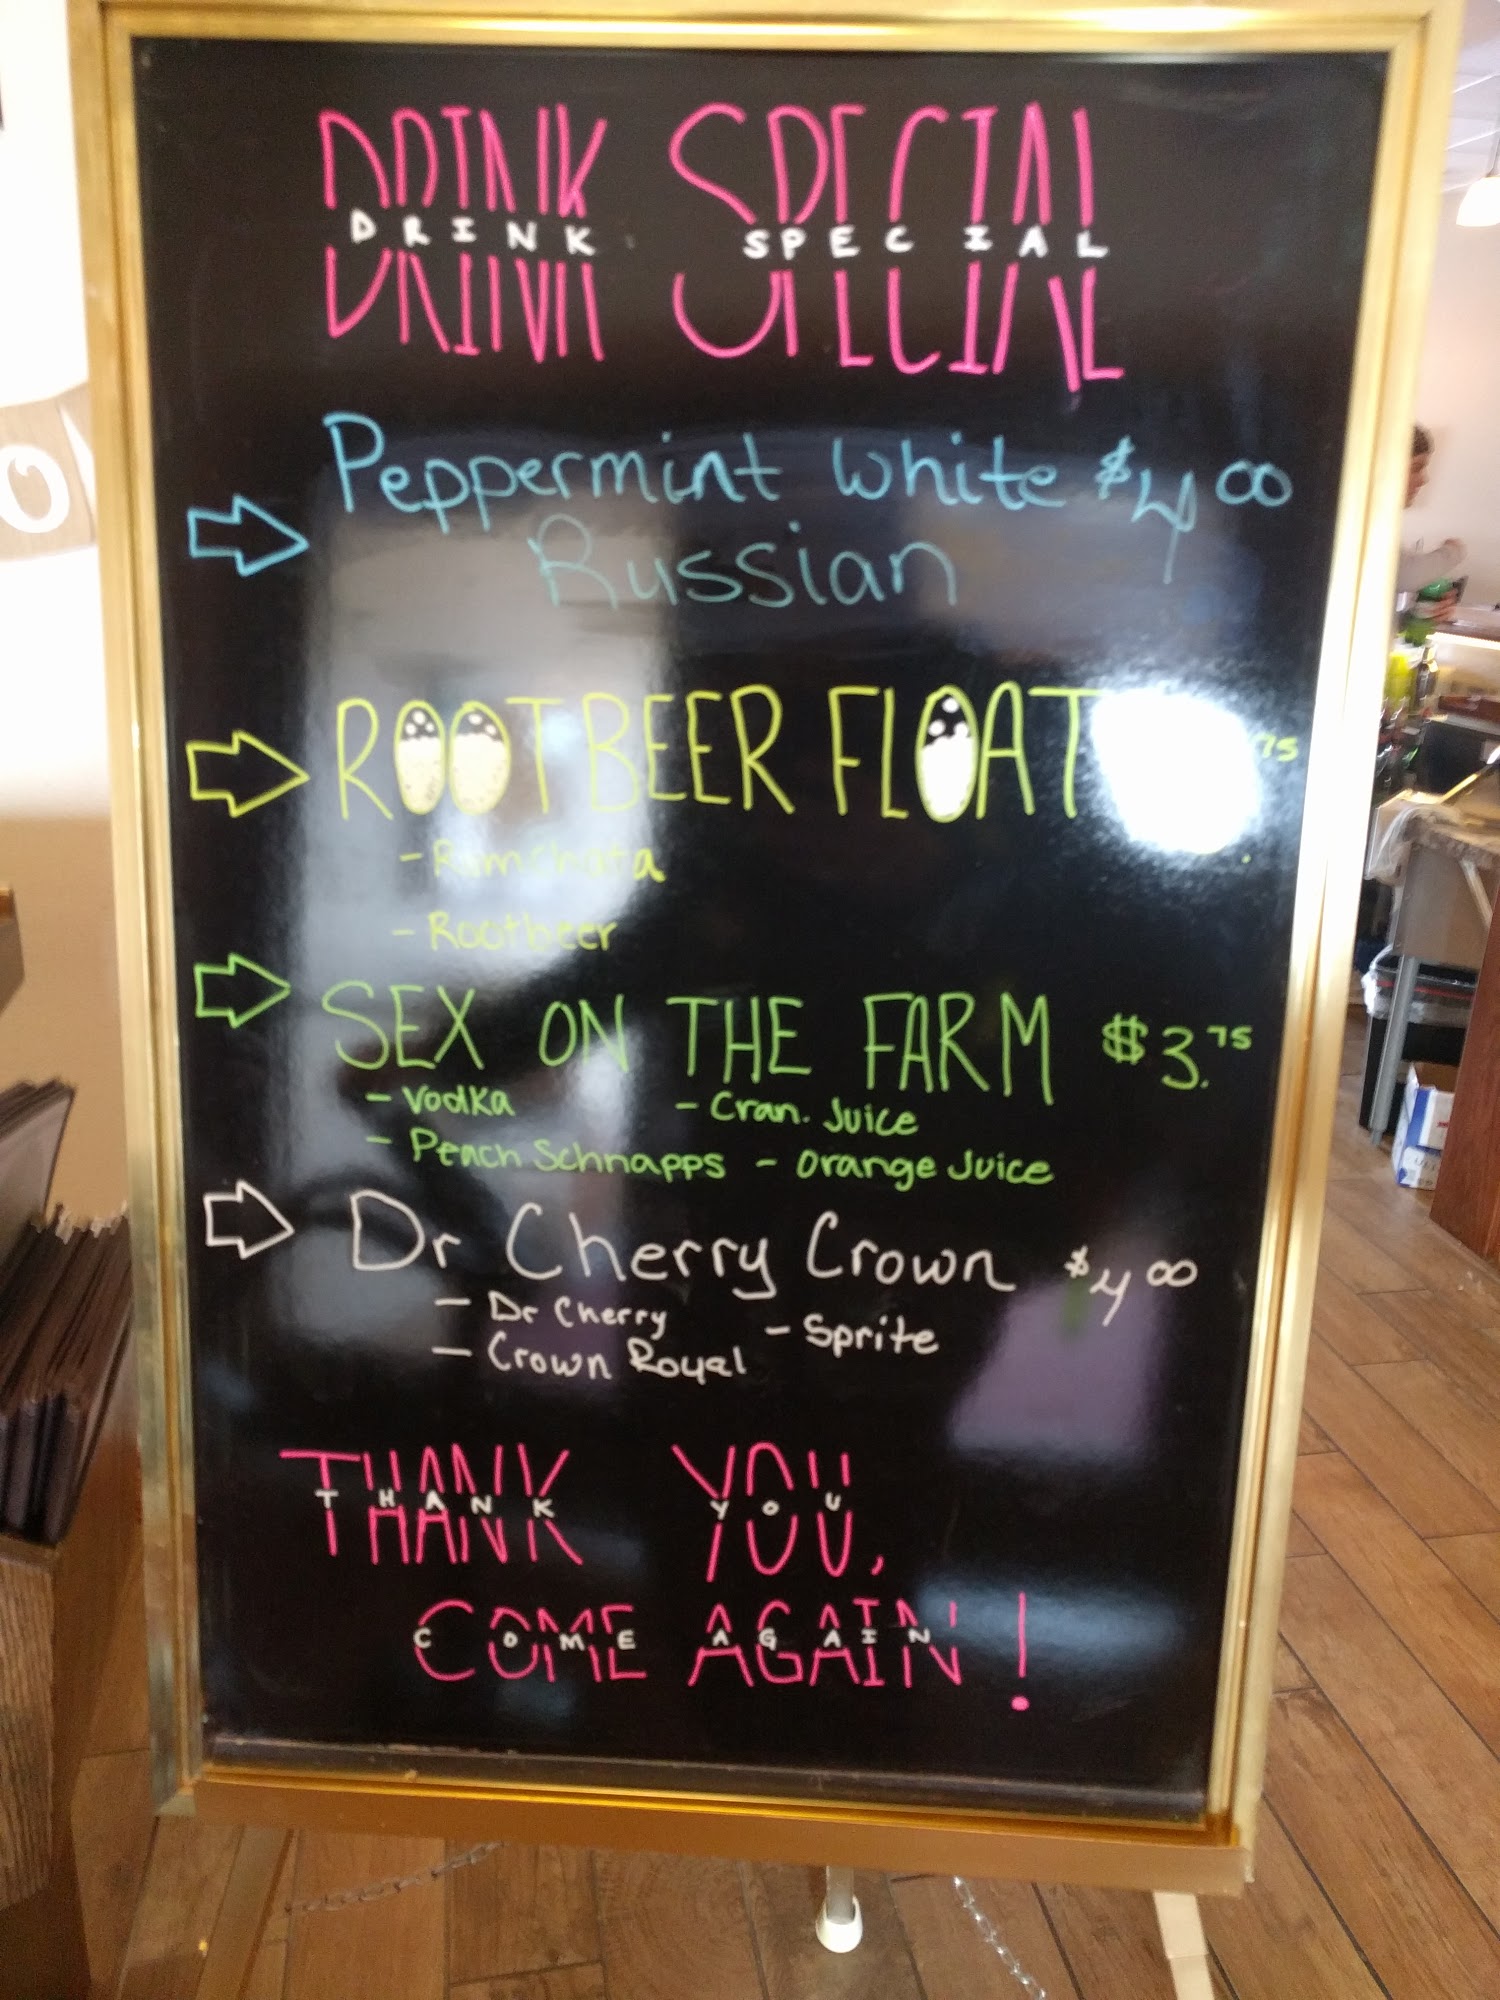 DRINK SPECIAL
DRINK SPECIAL
Peppermint White $4 00
Russian
ROOTBEER FLOAT 75
- Rumchata
- Rootbeer
SEX ON THE FARM $3.75
- Vodka - Cran. Juice
- Peach Schnapps - Orange Juice
Dr Cherry Crown $4 00
- Dr Cherry - Sprite
- Crown Royal
THANK YOU,
THANK YOU
COME AGAIN!
COME AGAIN